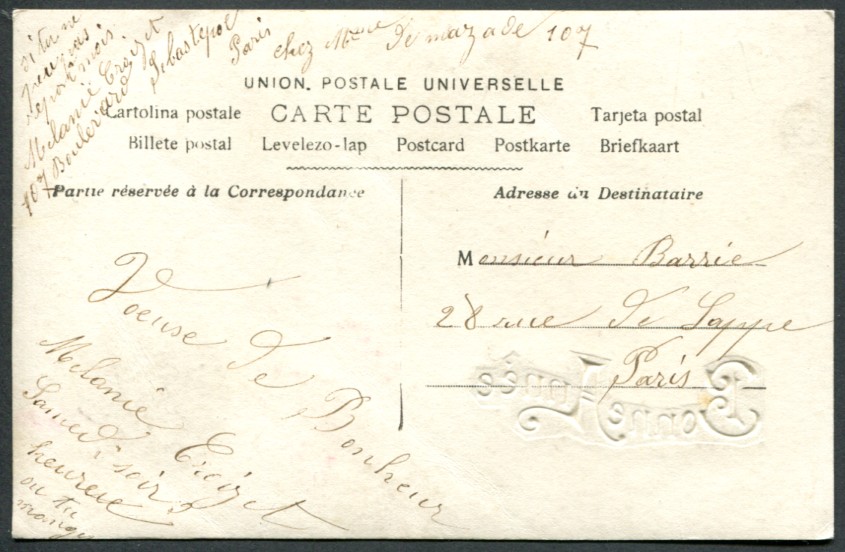 Paris chez Mme De mazade 107
si tu ne
pas
mois
Melanie Croizet
107 Boulevard Sébastopol
UNION. POSTALE UNIVERSELLE
CARTE POSTALE
Cartolina postale Tarjeta postal
Billete postal Levelezo-lap Postcard Postkarte Briefkaart
Partie réservée à la Correspondance
Adresse du Destinataire
Monsieur Barrie
28 rue de Lappe
Paris
Bonne Année
Voeuse de Bonheur
Melanie Croizet
Samedi soir
heureuse
ou tu